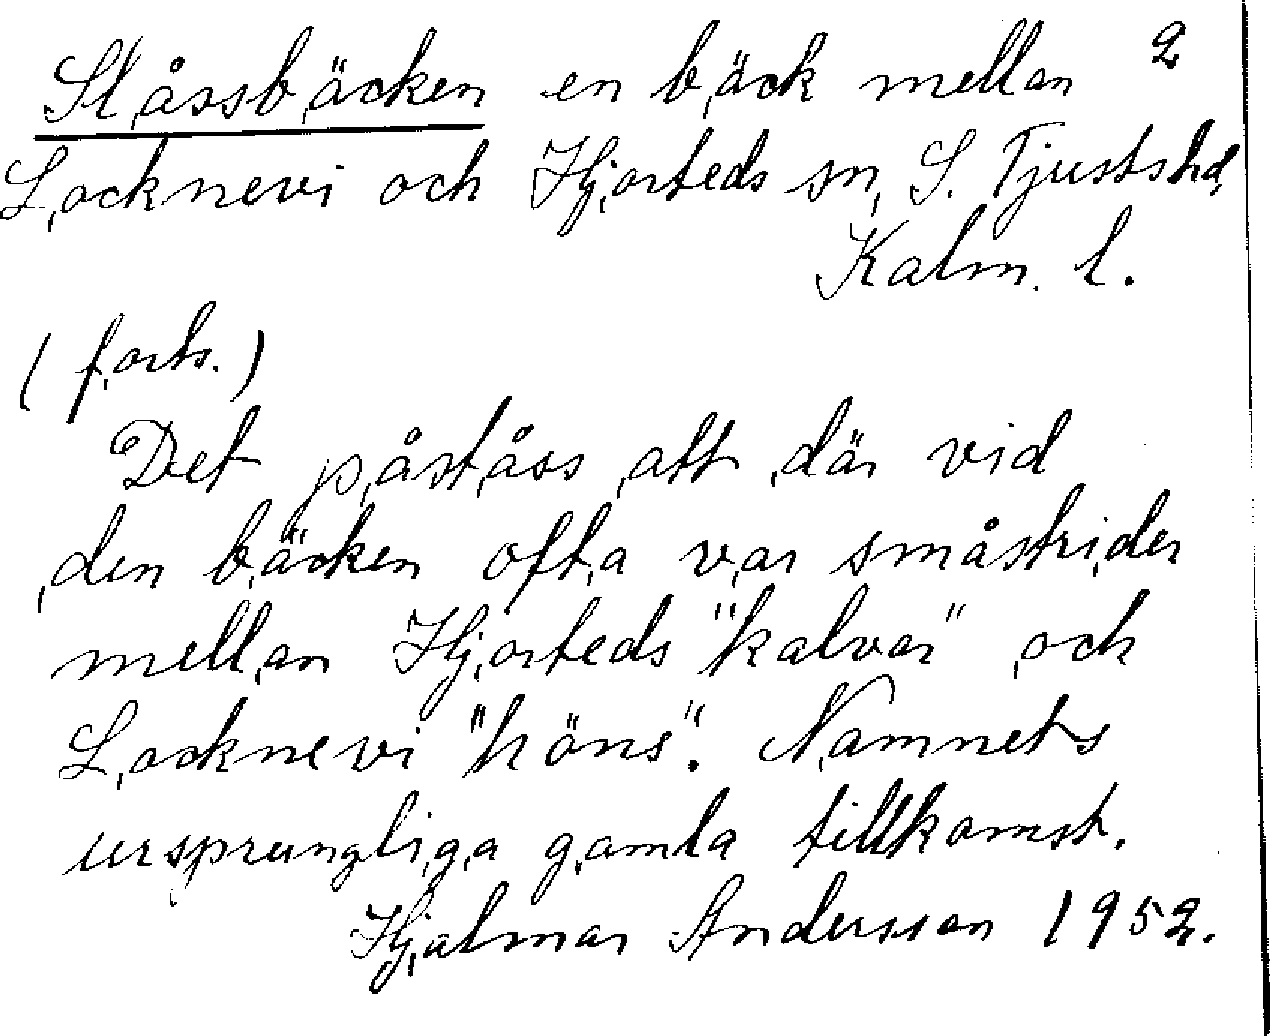 Slåssbäcken en bäck mellan 2
Locknevi och Hjorteds sn, S. Tjustshd,
Kalm. l.
(forts.)
Det påståss att där vid
den bäcken ofta var småstrider
mellan Hjorteds "kalvar" och
Locknevi "höns". Namnets
ursprungliga gamla tillkomst.
Hjalmar Andersson 1952.